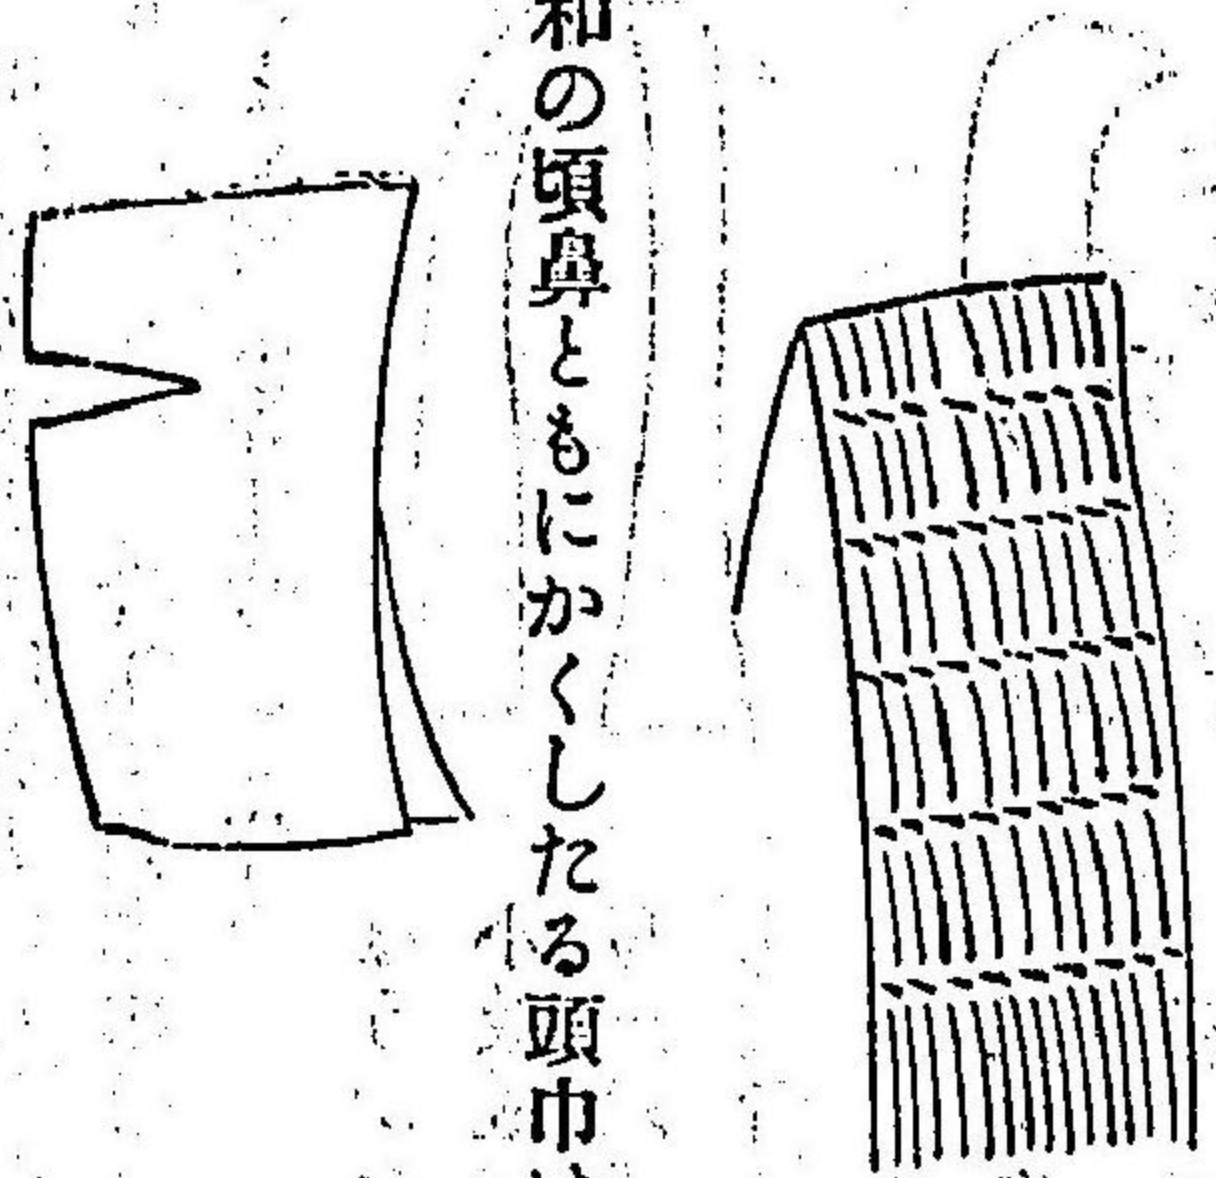 和の頃鼻ともにかくしたる頭巾